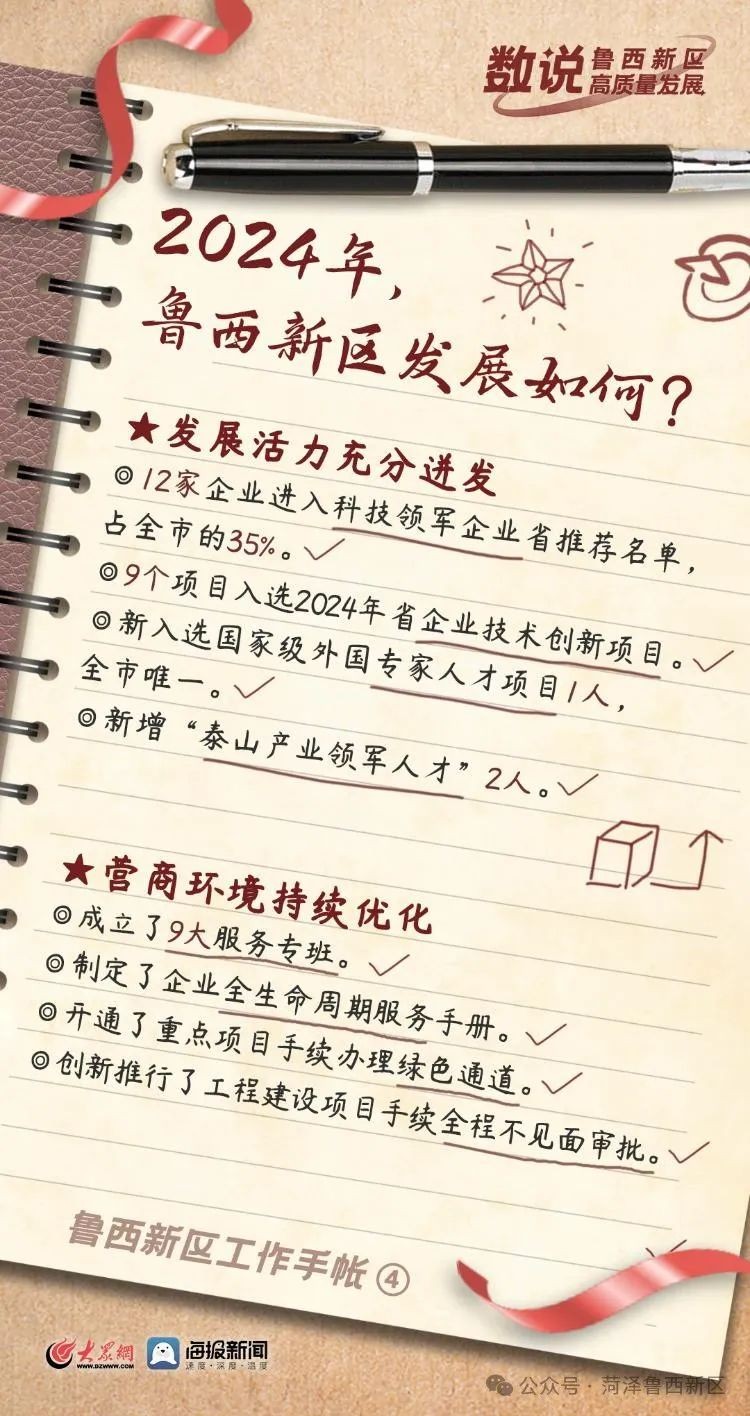 数说 鲁西新区
高质量发展
2024年，
鲁西新区发展如何？
★发展活力充分迸发
◎12家企业进入科技领军企业省推荐名单，
占全市的35%。
◎9个项目入选2024年省企业技术创新项目。
◎新入选国家级外国专家人才项目1人，
全市唯一。
◎新增“泰山产业领军人才”2人。
★营商环境持续优化
◎成立了9大服务专班。
◎制定了企业全生命周期服务手册。
◎开通了重点项目手续办理绿色通道。
◎创新推行了工程建设项目手续全程不见面审批。
鲁西新区工作手帐④
大众網
WWW.DZWWW.COM
海报新闻
速度·深度·温度
公众号·菏泽鲁西新区